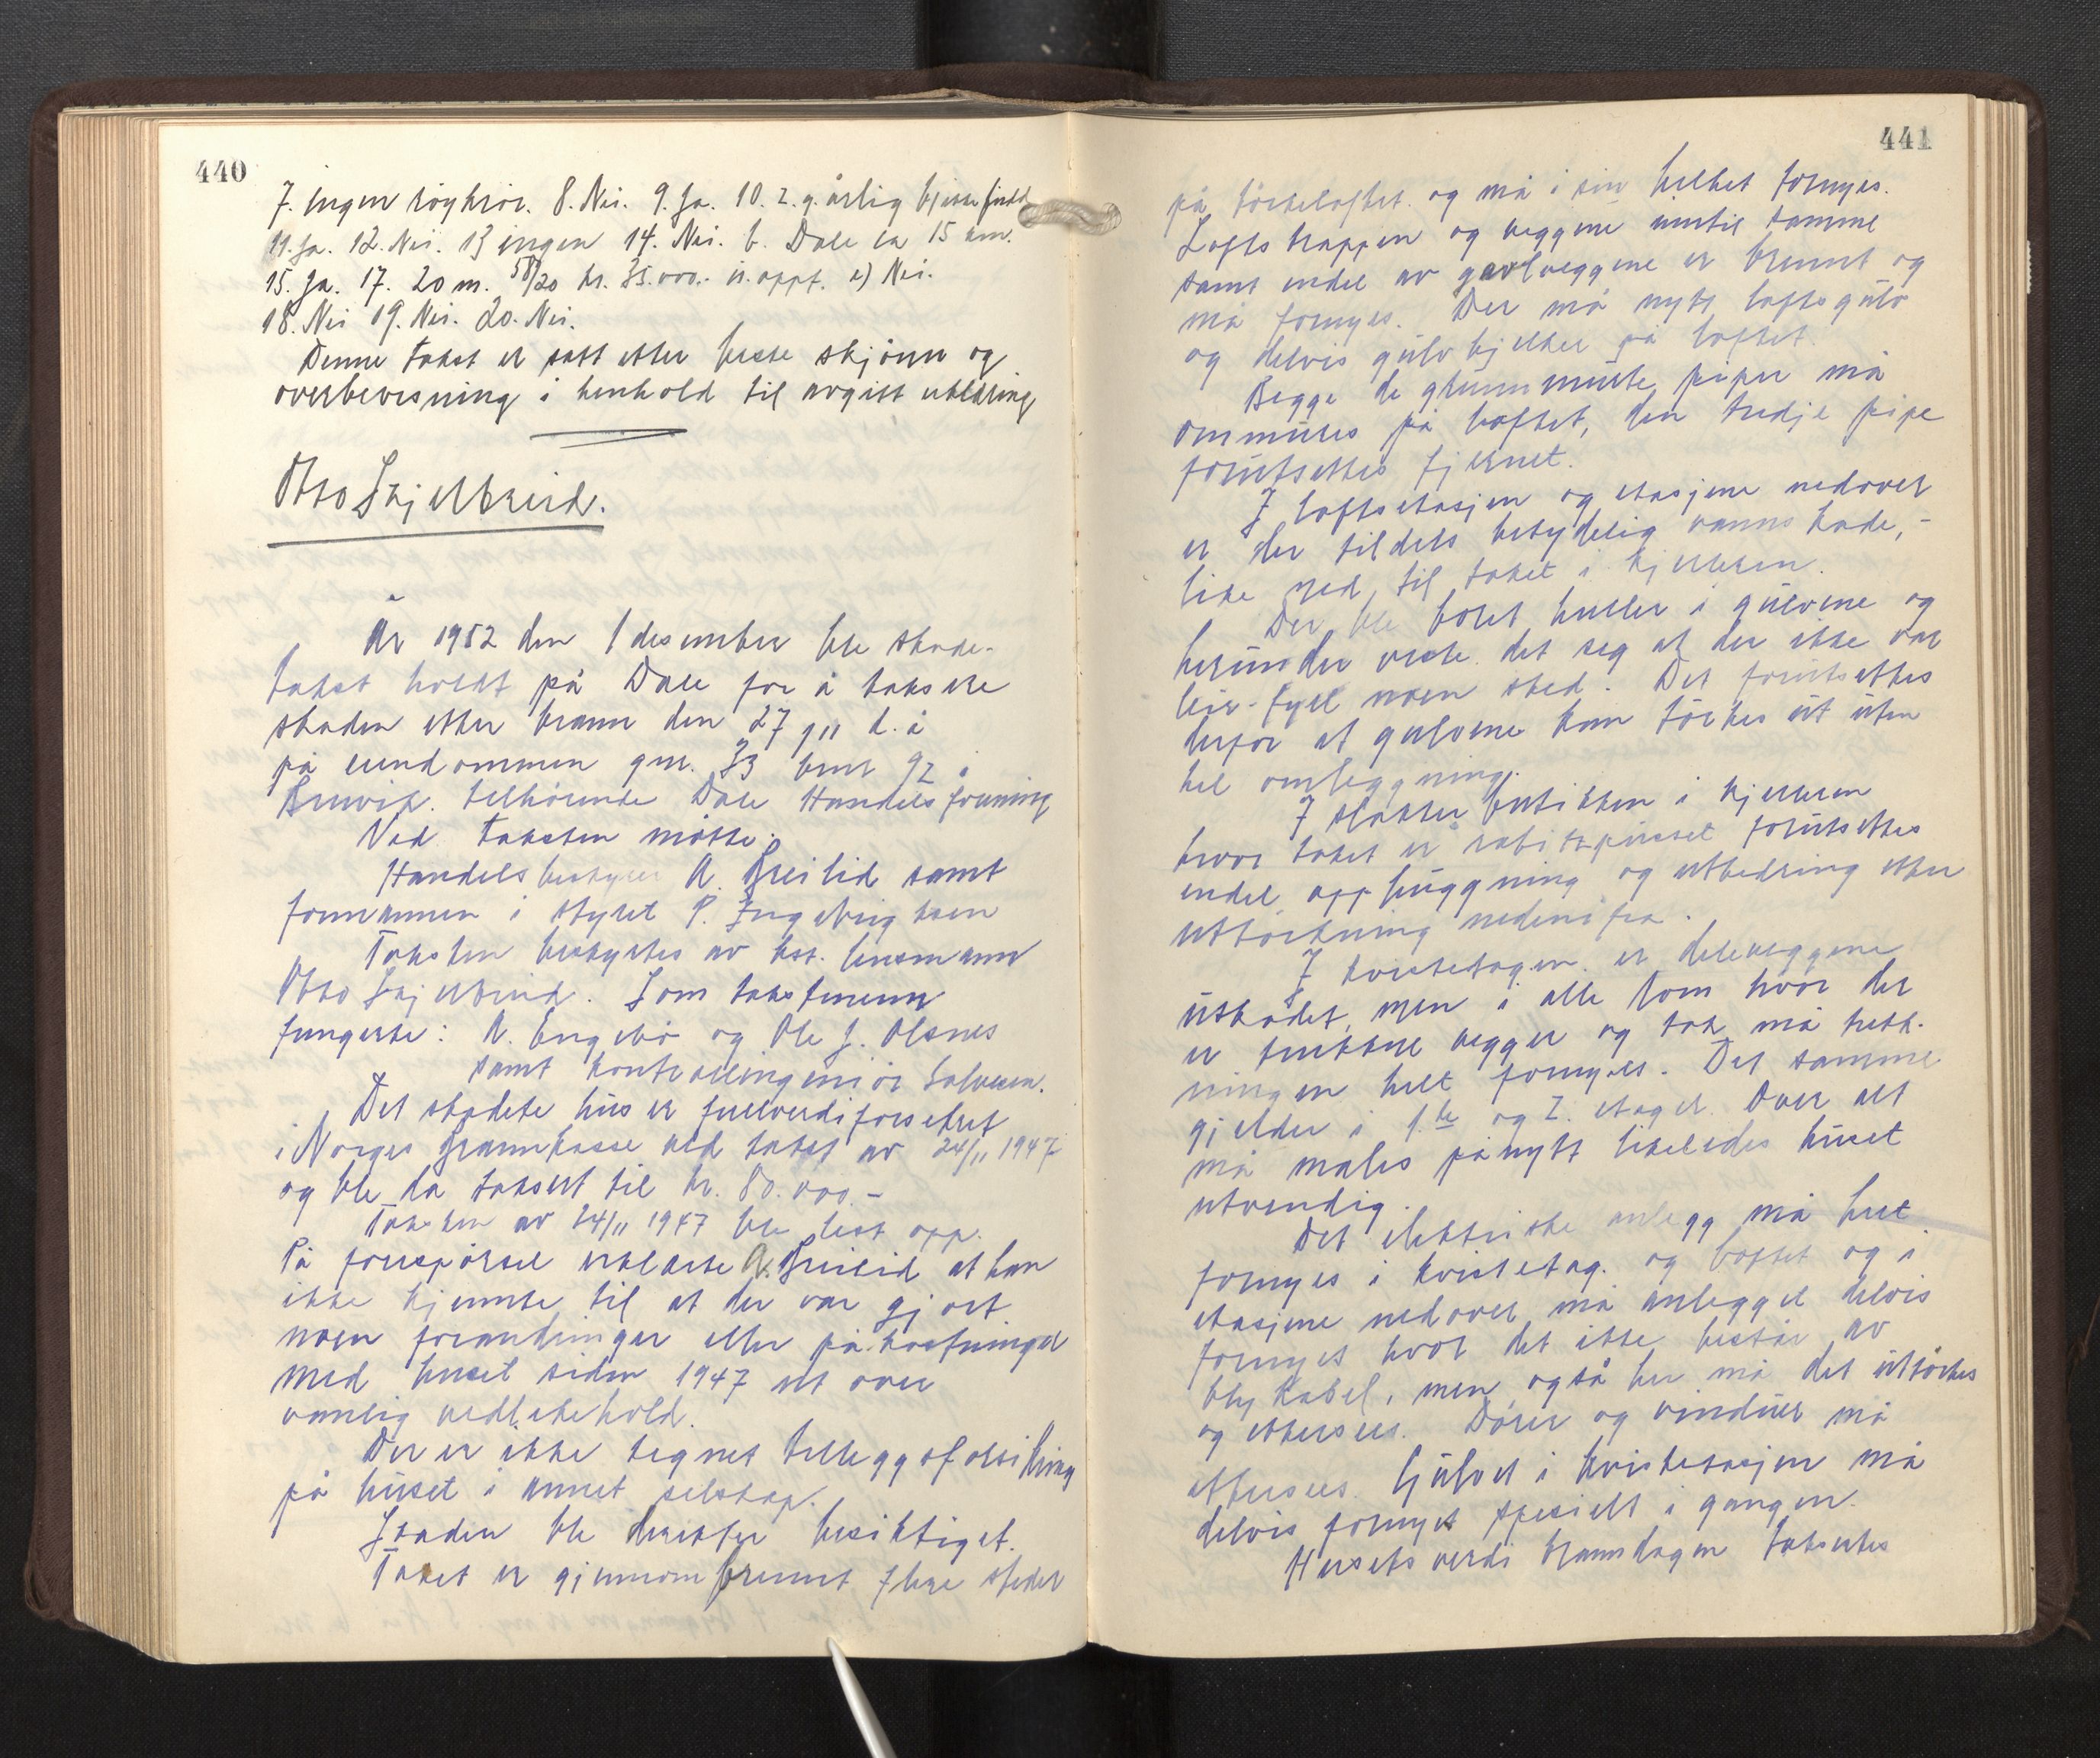 440
7. ingen røykrör. 8. Nei. 9. Ja. 10. 2. g. årlig
11. Ja. 12. Nei. 13 ingen 14. Nei. b. Dale ca 15 km.
15. Ja. 17. 20 m. 58/20 kr. 35.000.- n. oppf. e) Nei.
18. Nei 19. Nei. 20. Nei.
Denne takst er satt etter beste skjönn og
overbevisning i henhold til avgitt erklæring
Otto Skjelbreid.
År 1952 den 1 desember ble skade-
takst holdt på Dale for å taksere
skaden etter brann den 27/11 d. å
på eiendommen gnr. 33 bnr 92 i
Bruvik. tilhörende Dale Handelsforening
Ved taksten møtte:
Handelsbestyrer A. Breilid samt
formannen i styret P. Ingebrigtsen
Taksten bestyrtes av kst. lensmann
Otto Skjelbreid. Som takstmenn
fungerte: A. Engebö og Ole J. Olsnes
samt kontrollingeniör Salvesen.
Det skadete hus er fullverdiforsikret
i Norges Brannkasse ved takst av 24/11 1947
og ble da taksert til kr. 80.000.-
Taksten av 24/11 1947 ble lest opp.
På forespörsel erklærte A. Breilid at han
ikke kjennte til at der var gjort
noen forandringer eller påkostninger
med huset siden 1947 ut over
vanlig vedlikehold.
Der er ikke tegnet tilleggsforsikring
på huset i annet selskap.
Skaden ble derefter besiktiget.
Taket er gjennombrennt flere steder
441
på törkeloftet og må i sin helhet fornyes.
Loftstrappen og veggene inntil samme
samt endel av gavlveggene er brennt og
må fornyes. Der må nytt loftsgulv
og delvis gulvbjelker på loftet.
Begge de grunnmurte piper må
ommures på loftet, den tredje pipe
forutsettes fjernet.
I loftsetasjen og etasjene nedover
er der tildels betydelig vannskade,-
like ned til taket i kjelleren.
Der ble boret huller i gulvene og
herunder viste det seg at der ikke var
leir-fyll noen sted. Det forutsettes
derfor at gulvene kan törkes ut uten
hel omleggning.
I slakter butikken i kjelleren
hvor taket er rabitzpusset forutsettes
endel opphuggning og utbedring etter
uttörkning nedenifra.
I kvistetagen er deleveggene
uskadet, men i alle rom hvor der
er trukkne vegger og tak må trekk-
ningen helt fornyes. Det samme
gjelder i 1.ste og 2. etager. Over alt
må males pånytt likeledes huset
utvendig.
Det elektriske anlegg må helt
fornyes i kvistetag. og loftet og i
etasjene nedover må anlegget delvis
fornyes hvor det ikke består av
blykabel, men også her må det uttörkes
og ettersees. Dörer og vinduer må
ettersees. Gulvet i kvistetasjen må
delvis fornyes spesielt i gangen.
Husets verdi branndagen taksertes